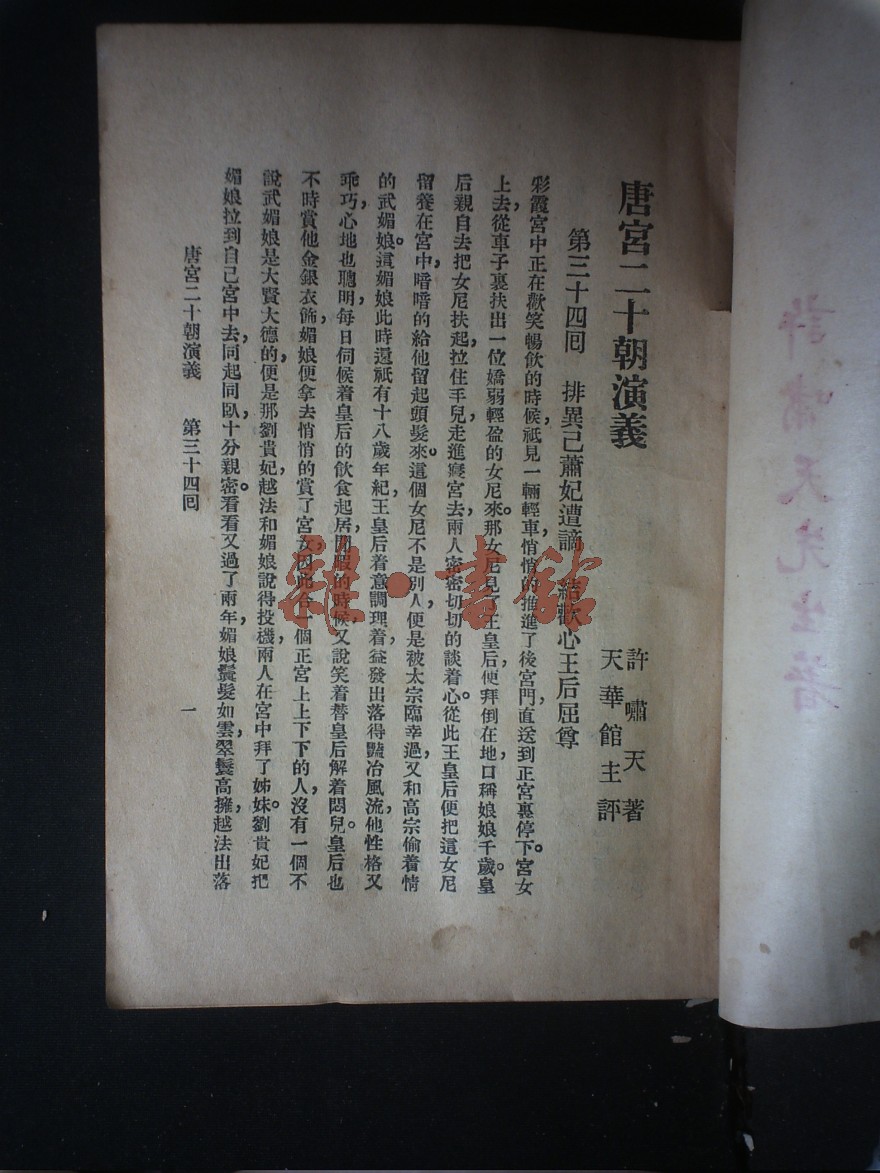 唐宮二十朝演義
許嘯天著
天華館主評
第三十四回 排異己蕭妃遭謫 結歡心王后屈尊
彩霞宮中正在歡笑暢飲的時候,祇見一輛輕車悄悄的推進了後宮門,直送到正宮裏停下。宮女
上去,從車子裏扶出一位嬌弱輕盈的女尼來。那女尼見了王皇后,便拜倒在地,口稱娘娘千歲。皇
后親自去把女尼扶起,拉住手兒,走進寢宮去,兩人密密切切的談着心。從此王皇后便把這女尼
留養在宮中,暗暗的給他留起頭髮來。這個女尼不是別人,便是被太宗臨幸過,又和高宗偷着情
的武媚娘。這媚娘此時還祇有十八歲年紀,王皇后着意調理着,益發出落得豔冶風流,他性格又
乖巧,心地也聰明,每日伺候着皇后的飲食起居,閒暇的時候,又說笑着替皇后解着悶兒。皇后也
不時賞他金銀衣飾,媚娘便拿去悄悄的賞了宮女,因此合一個正宮上上下下的人,沒有一個不
說武媚娘是大賢大德的,便是那劉貴妃,越法和媚娘說得投機,兩人在宮中拜了姊妹。劉貴妃把
媚娘拉到自己宮中去,同起同臥,十分親密。看看又過了兩年,媚娘鬢髮如雲,翠鬟高擁,越法出落
唐宮二十朝演義 第三十四回 一
許嘯天先生著